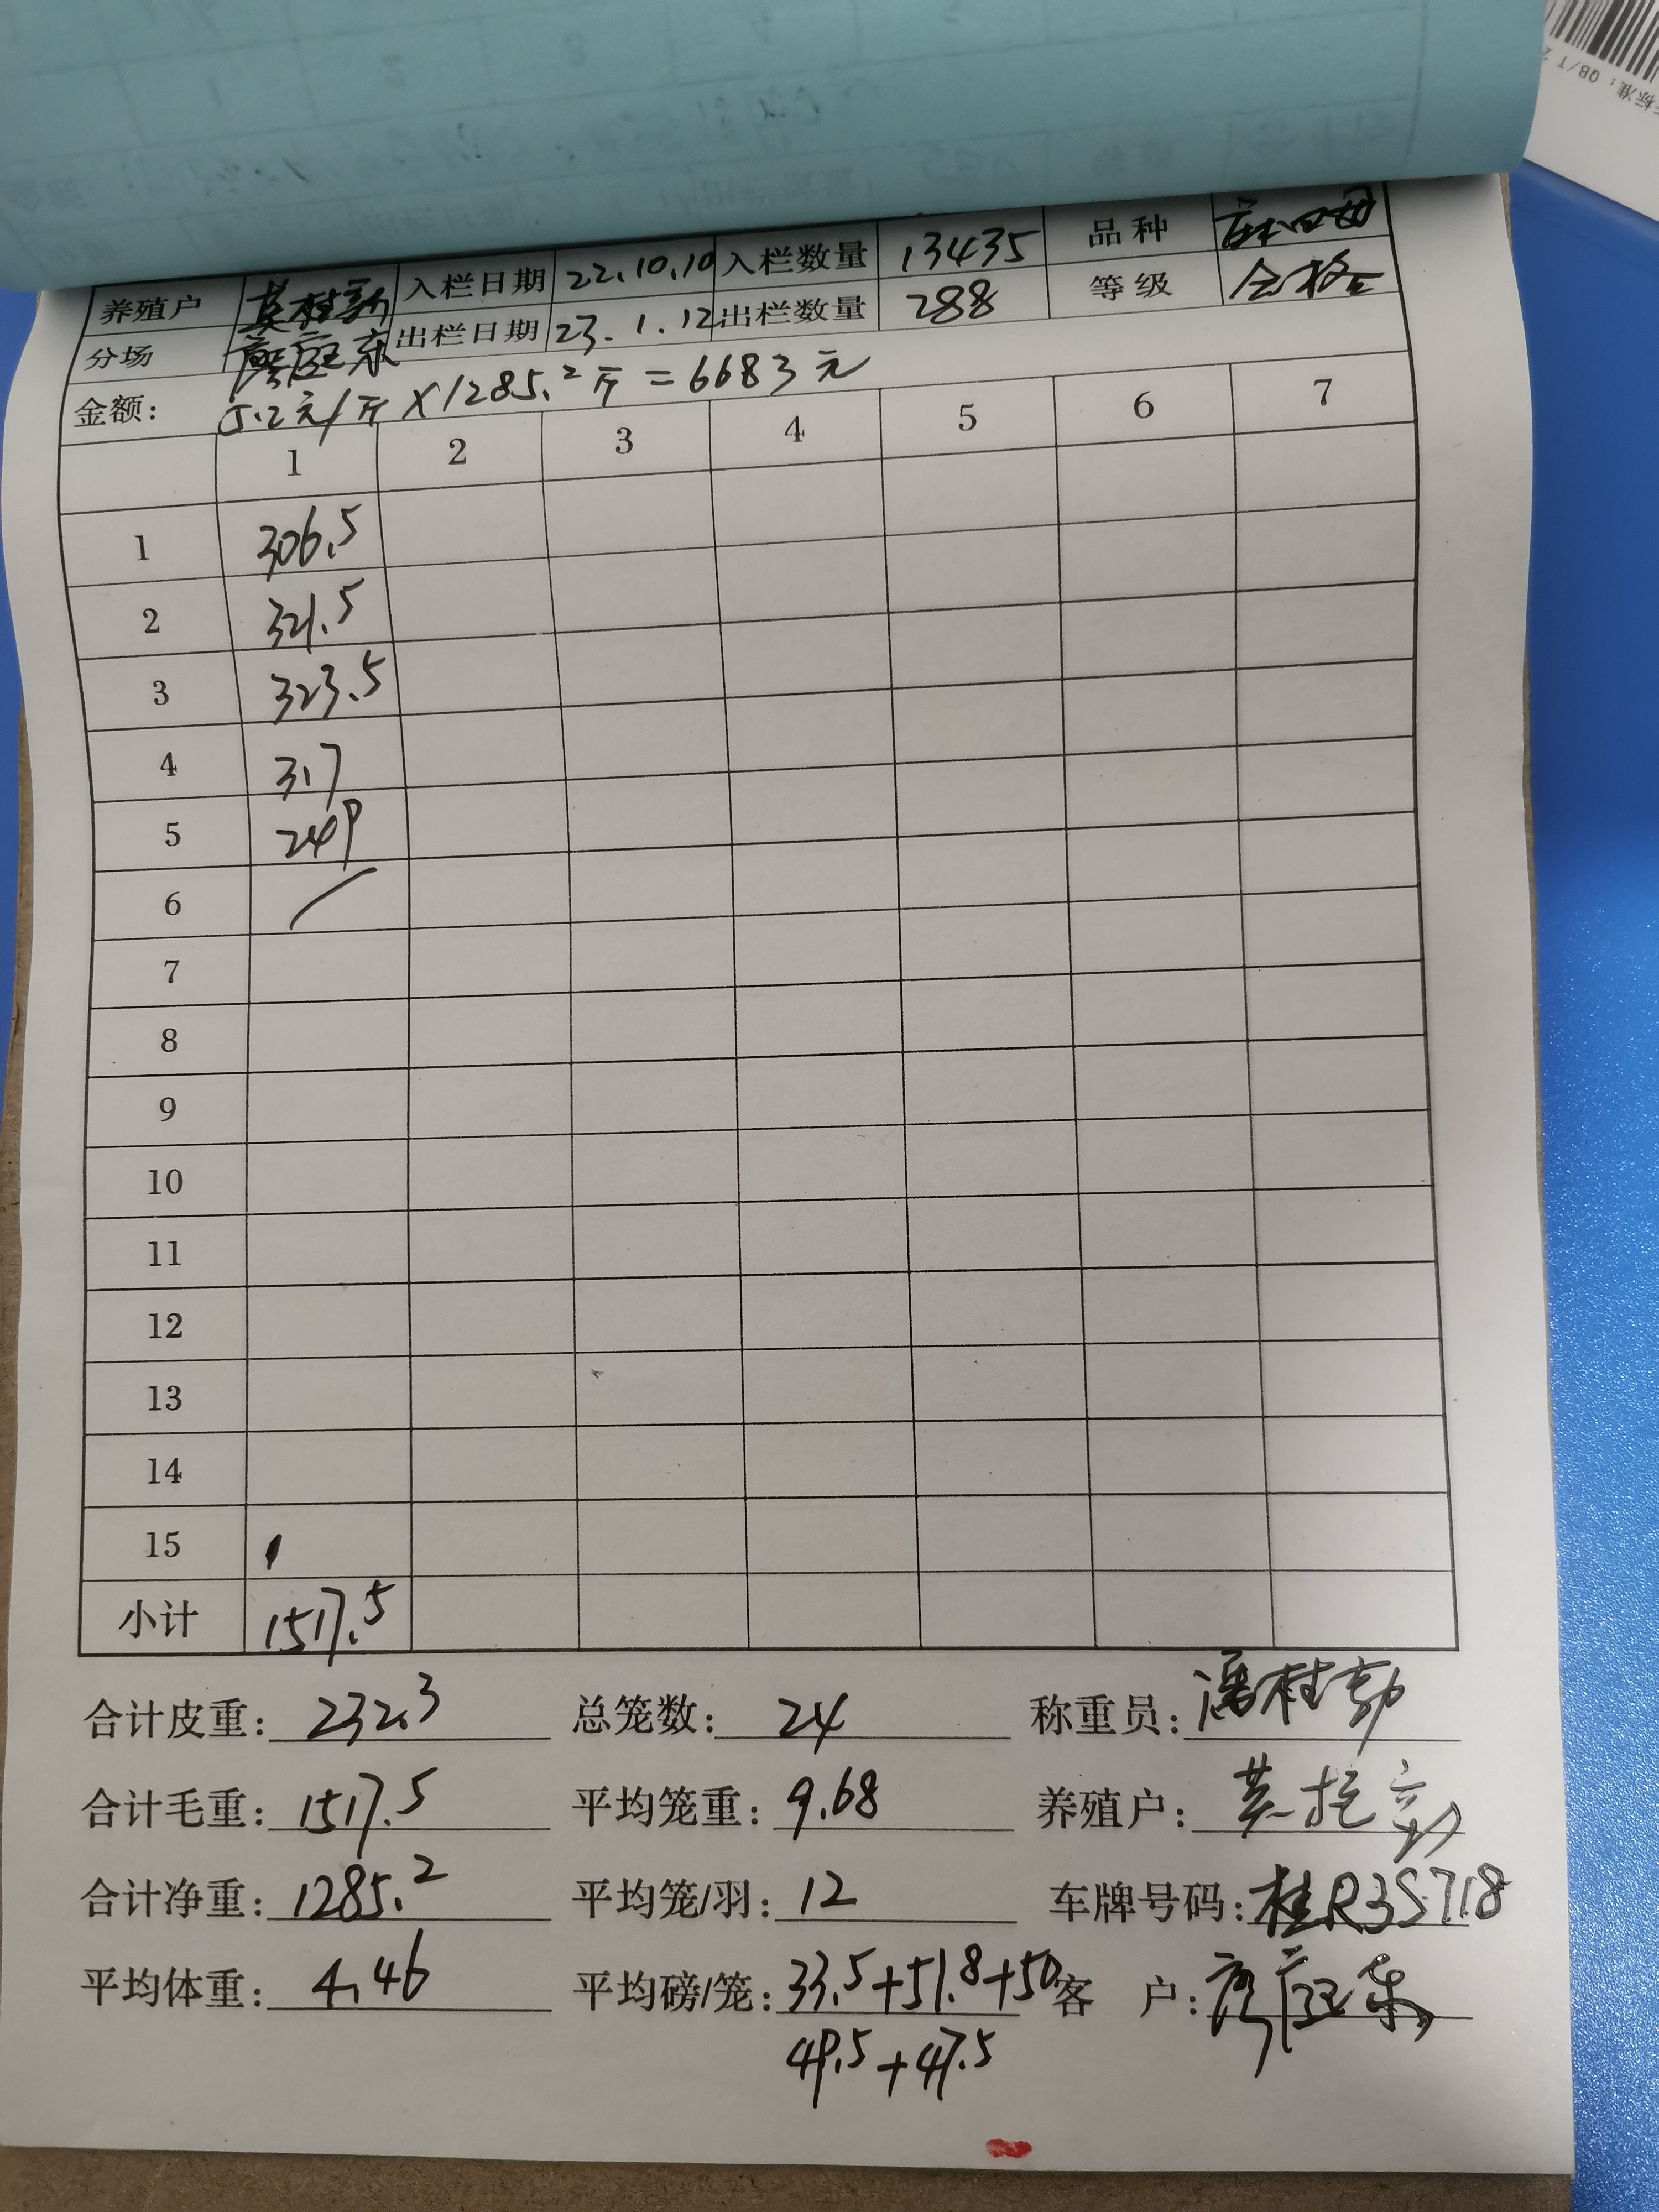 标准：QB/T 2
养殖户 入栏日期 22.10.10 入栏数量 13435 品种
分场 廖应东 出栏日期 23.1.12 出栏数量 288 等级 合格
金额： 5.2元/斤×1285.2斤=6683元
1 2 3 4 5 6 7
1 306.5
2 321.5
3 323.5
4 317
5 249
6
7
8
9
10
11
12
13
14
15
小计 1517.5
合计皮重：232.3 总笼数：24 称重员：
合计毛重：1517.5 平均笼重：9.68 养殖户：
合计净重：1285.2 平均笼/羽：12 车牌号码：桂R3S718
平均体重：4.46 平均磅/笼：33.5+51.8+50 客 户：廖应东
49.5+47.5